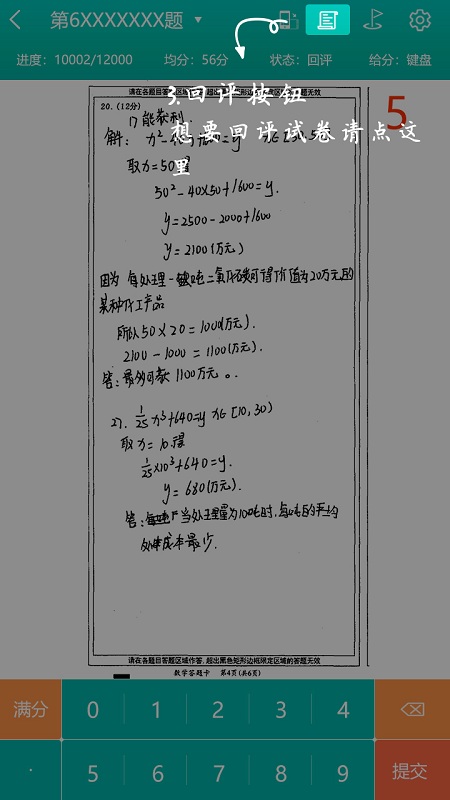 第6XXXXXXX题
进度：10002/12000 均分：56分 状态：回评 给分：键盘
请在各题目答题区域作答，超出黑色矩形边框限定区域的答题无效
3.回评按钮
想要回评试卷请点这
里
5
20.（12分）
1) 能获利.
解：
取x=50得
50²-40×50+1600=y.
y=2500-2000+1600
y=2100(万元)
因为 每处理一吨二氧化碳可得价值为20万元的
某种化工产品
所以50×20=1000(万元).
2100-1000=1100(万元).
答：最多可获1100万元。
27. 1/25 x³+640=y x∈[10,30)
取x=10.得
1/25×10³+640=y.
y=680(万元).
答：当处理量为100吨时，每吨的平均
处理成本最少.
请在各题目答题区域作答，超出黑色矩形边框限定区域的答题无效
数学答题卡 第4页(共6页)
满分 0 1 2 3 4
· 5 6 7 8 9 提交